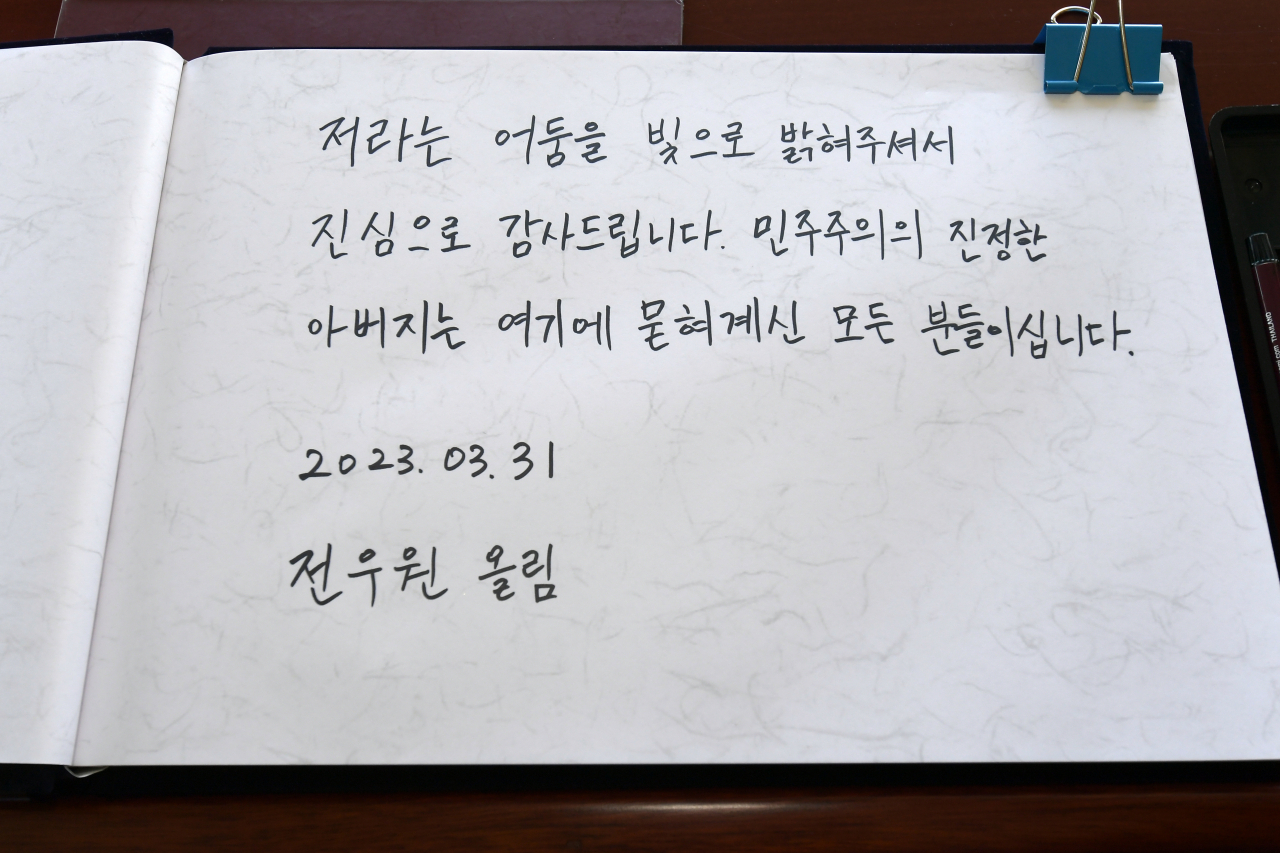 저라는 어둠을 빛으로 밝혀주셔서
진심으로 감사드립니다. 민주주의의 진정한
아버지는 여기에 묻혀계신 모든 분들이십니다.
2023. 03. 31
전우원 올림
THAILAND